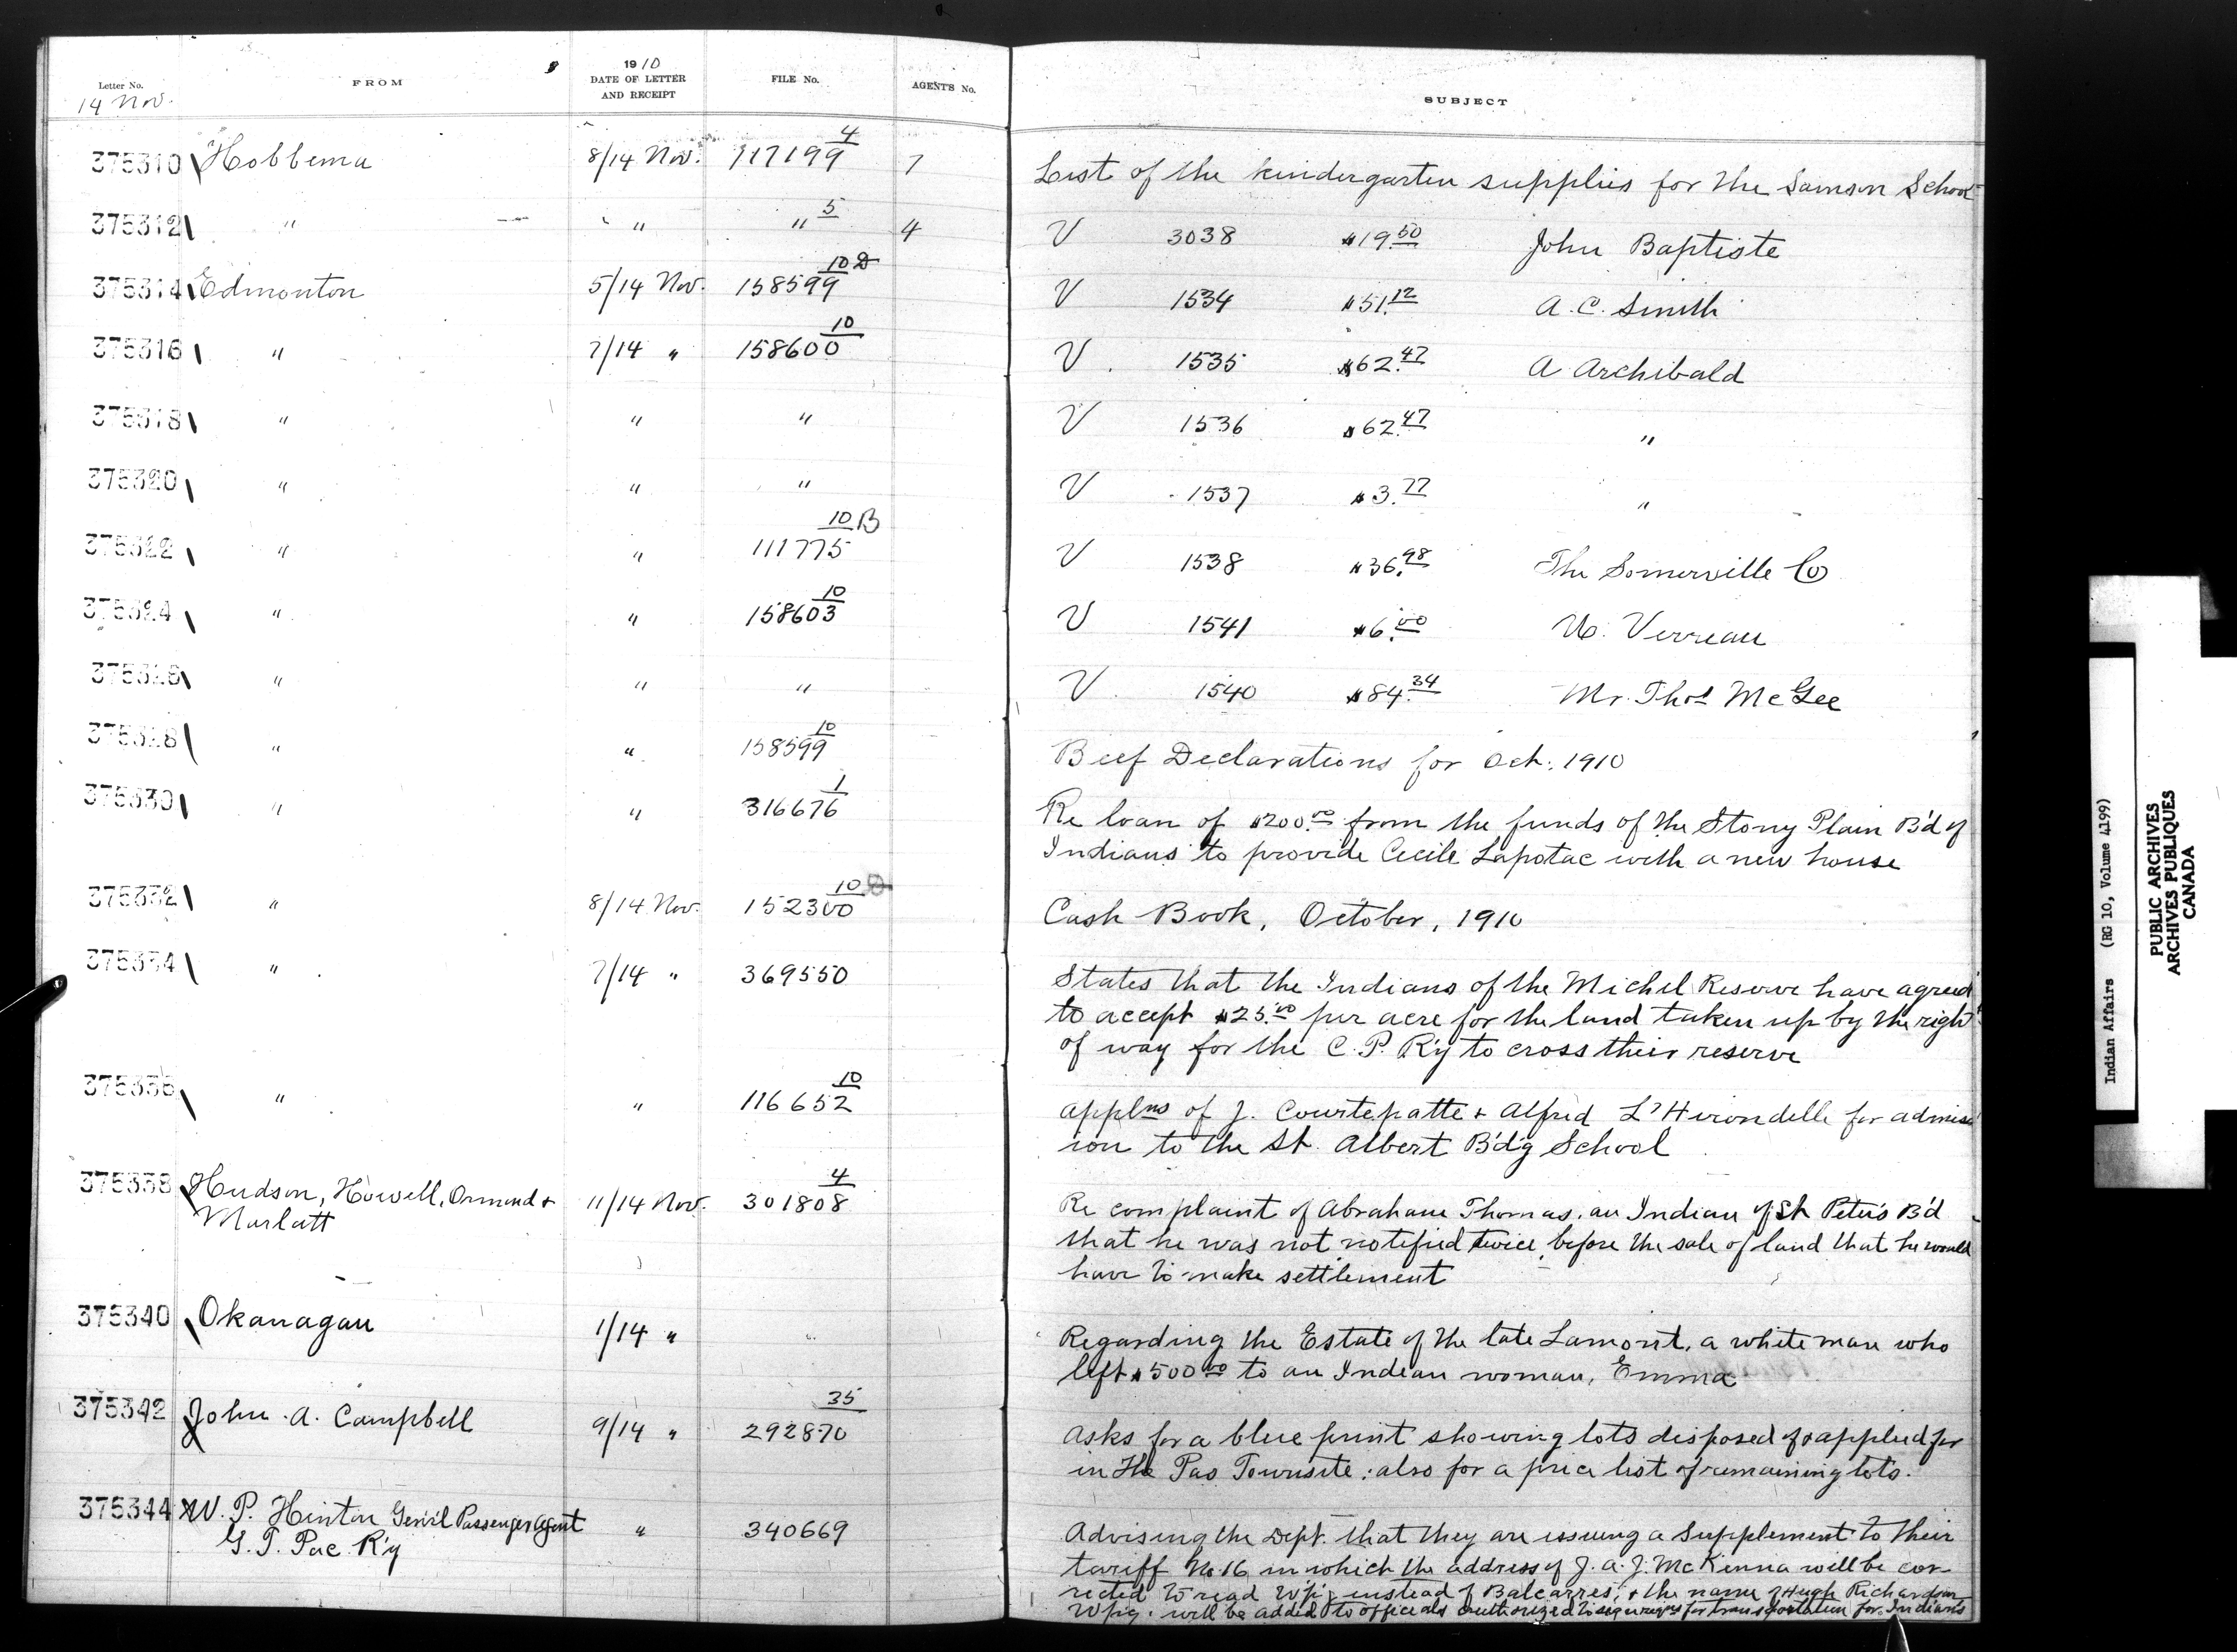 Letter No. FROM 1910 DATE OF LETTER AND RECEIPT FILE No. AGENT'S No. SUBJECT
14 Nov.
375310 Hobbema 8/14 Nov. 117199 4 7 List of the kindergarten supplies for the Samson School
375312 " " " 5 4 V 3038 $19.50 John Baptiste
375314 Edmonton 5/14 Nov. 158599 10 D V 1534 $51.12 A. C. Smith
375316 " 7/14 " 158600 10 V 1535 $62.47 A Archibald
375318 " " " V 1536 $62.47 "
375320 " " " V 1537 $3.77 "
375322 " " 111775 10 B V 1538 $36.98 The Somerville Co
375324 " " 158603 10 V 1541 $6.00 Verreau
375326 " " " V 1540 $84.34 Mr. Thos McGee
375328 " " 158599 10 Beef Declarations for Oct. 1910
375330 " " 316676 1 Re loan of $200.00 from the funds of the Stony Plain B'd of
Indians to provide Cecile Lapotac with a new house
375332 " 8/14 Nov. 152300 10 D Cash Book, October, 1910
375334 " 7/14 " 369550 States that the Indians of the Michel Reserve have agreed
to accept $25.00 per acre for the land taken up by the right
of way for the C. P. R'y to cross their reserve
375336 " " 116652 10 Applns of J. Courtepatte + Alfred L'Hirondelle for admiss
ion to the St. Albert B'd'g School
375338 Hudson, Howell, Ormond + 11/14 Nov. 301808 4 Re complaint of Abraham Thomas, an Indian of St Peter's B'd
Marlatt that he was not notified twice before the sale of land that he would
have to make settlement
375340 Okanagan 1/14 " " Regarding the Estate of the late Lamont, a white man who
left $500.00 to an Indian woman, Emma
375342 John A. Campbell 9/14 " 292870 35 Asks for a blue print showing lots disposed of or applied for
in The Pas Townsite; also for a price list of remaining lots.
375344 W. P. Hinton Gen'l Passenger Agent " 340669 Advising the Dept. that they are issuing a Supplement to their
G. T. Pac. R'y tariff No. 16 in which the address of J. A. J. McKenna will be cor-
rected to read W'p'g instead of Balcarres, + the name of Hugh Richardson
W'p'g. will be added to officials authorized to sign for transportation for Indians
Indian Affairs (RG 10, Volume 4199)
PUBLIC ARCHIVES
ARCHIVES PUBLIQUES
CANADA